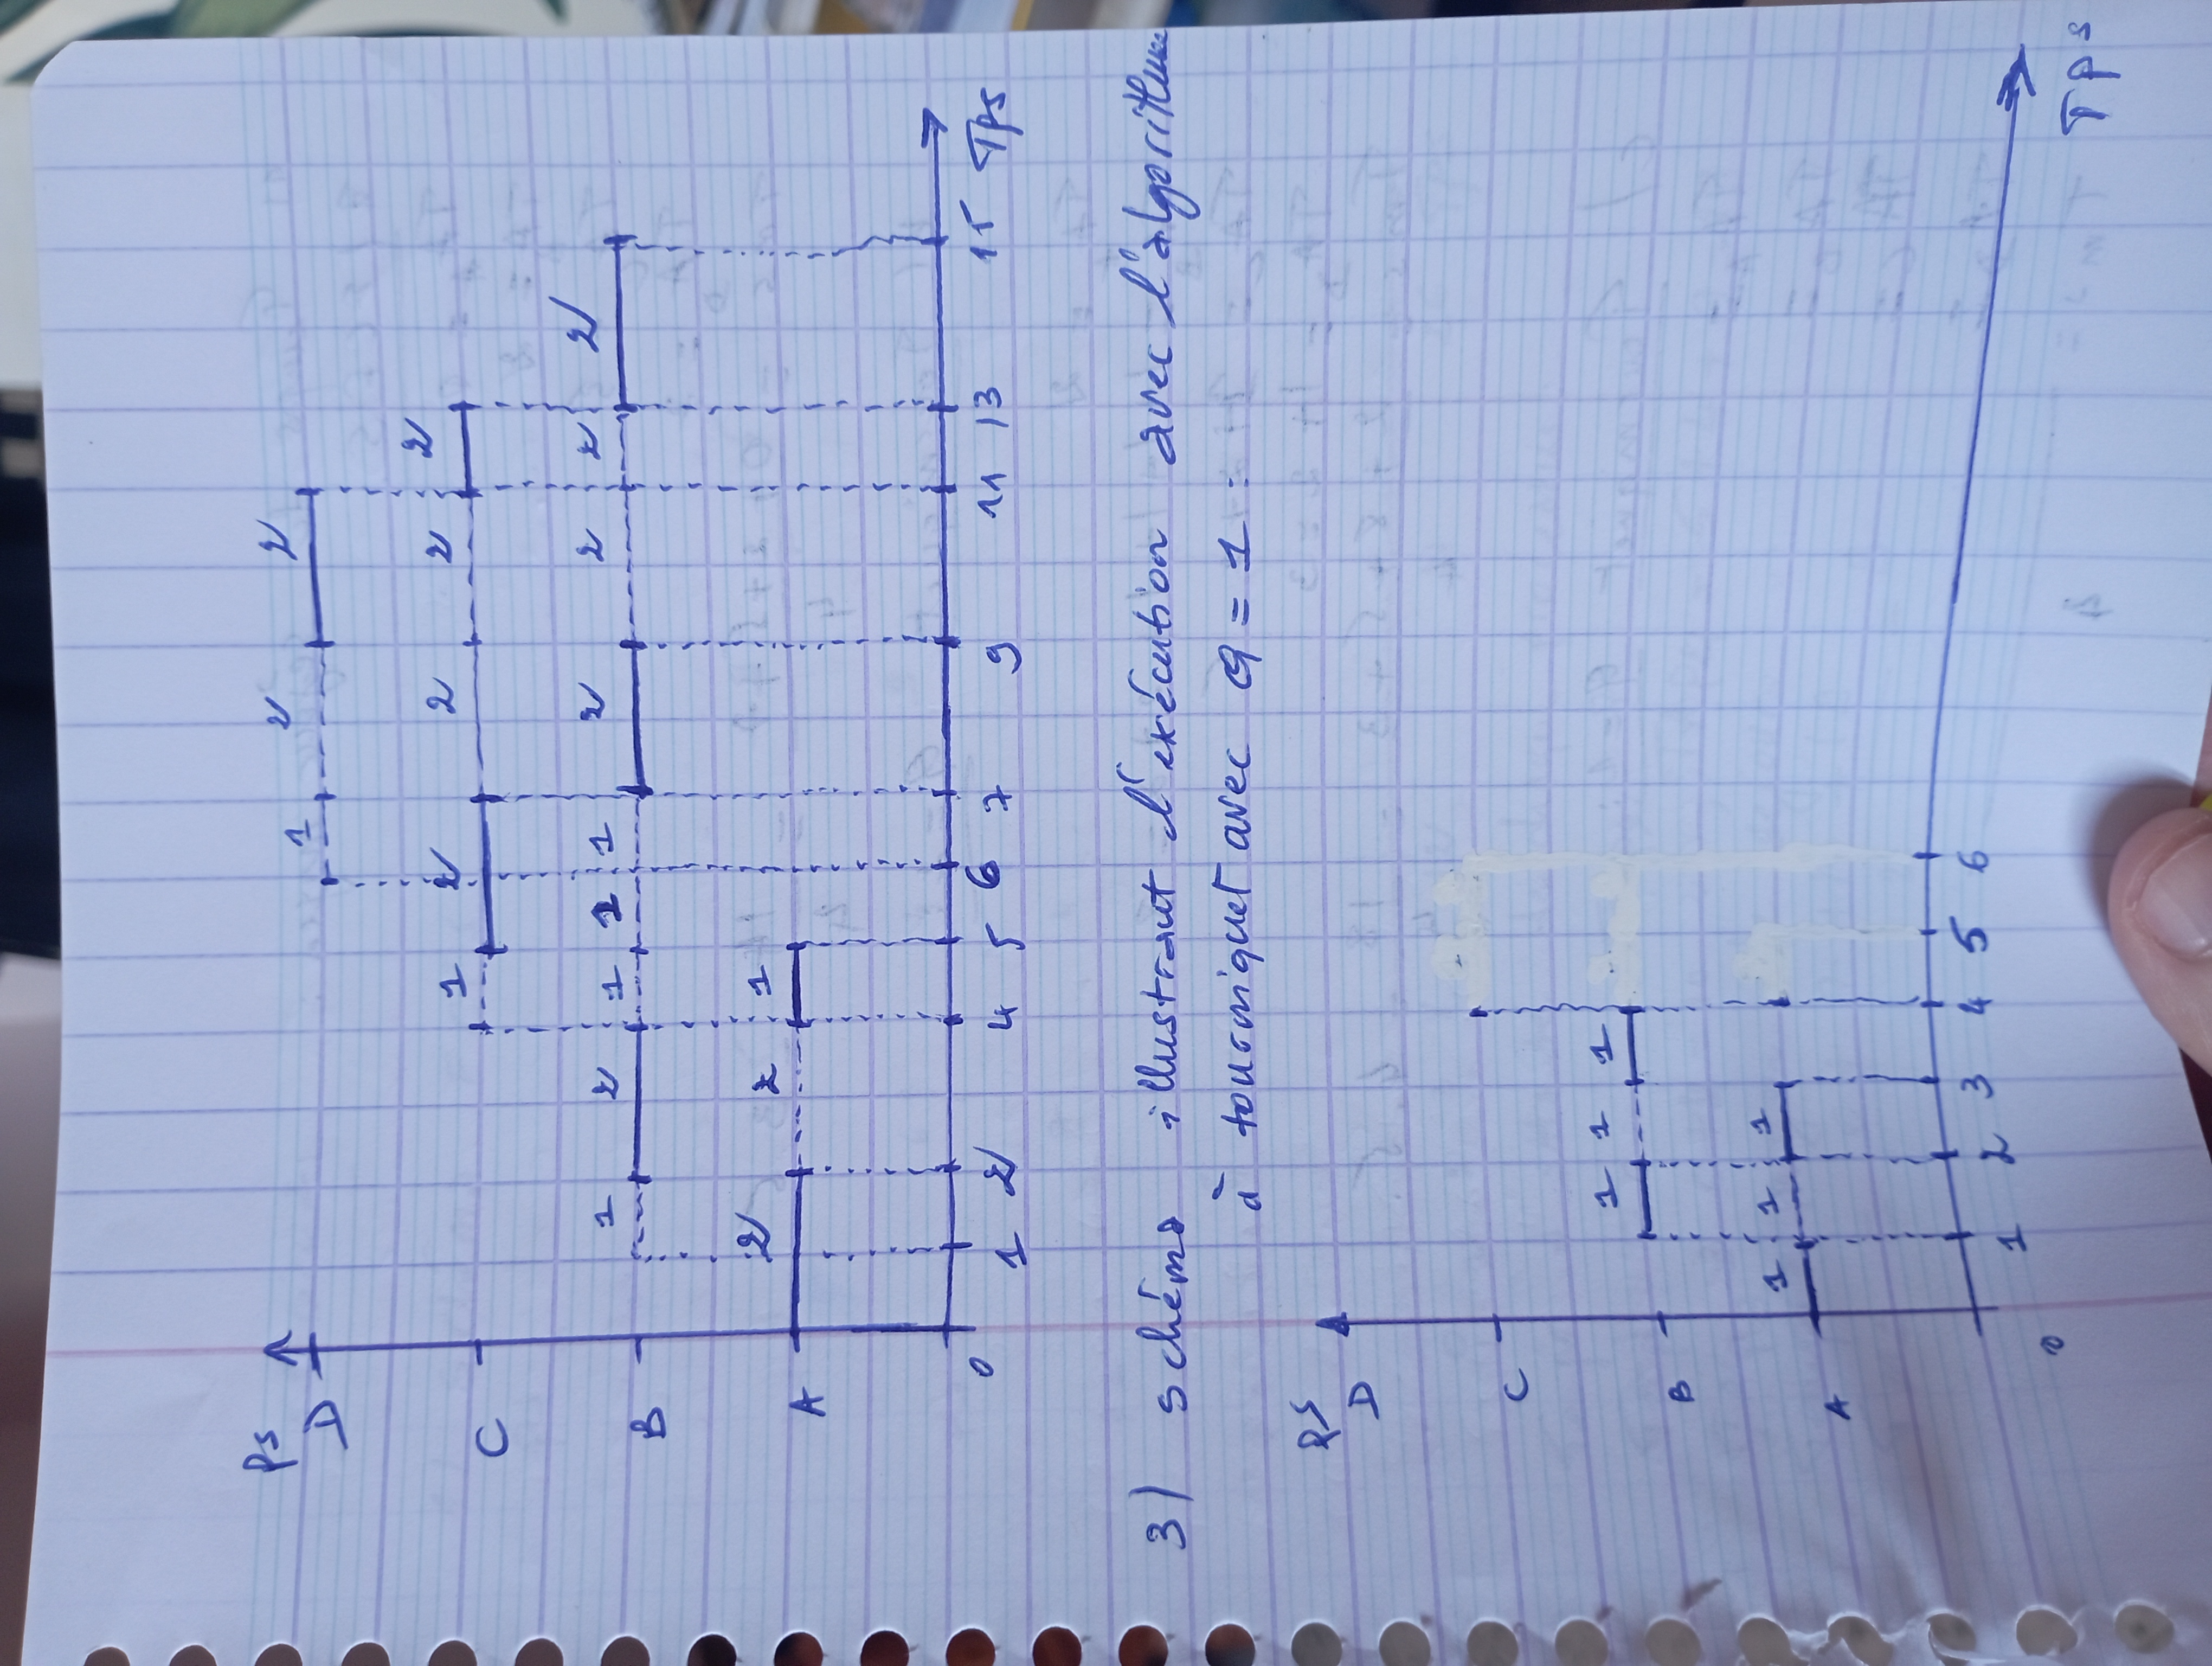 Ps
1 2 2
D
1 2 2 2 2
C
1 2 1 1 1 2 2 2 2
B
2 2 1
A
0 1 2 4 5 6 7 9 11 13 15 Tps
3) schéma illustrant l'exécution avec l'algorithme
à tourniquet avec Q = 1 :
Ps
D
C
1 1 1
B
1 1 1
A
0 1 2 3 4 5 6
Tps